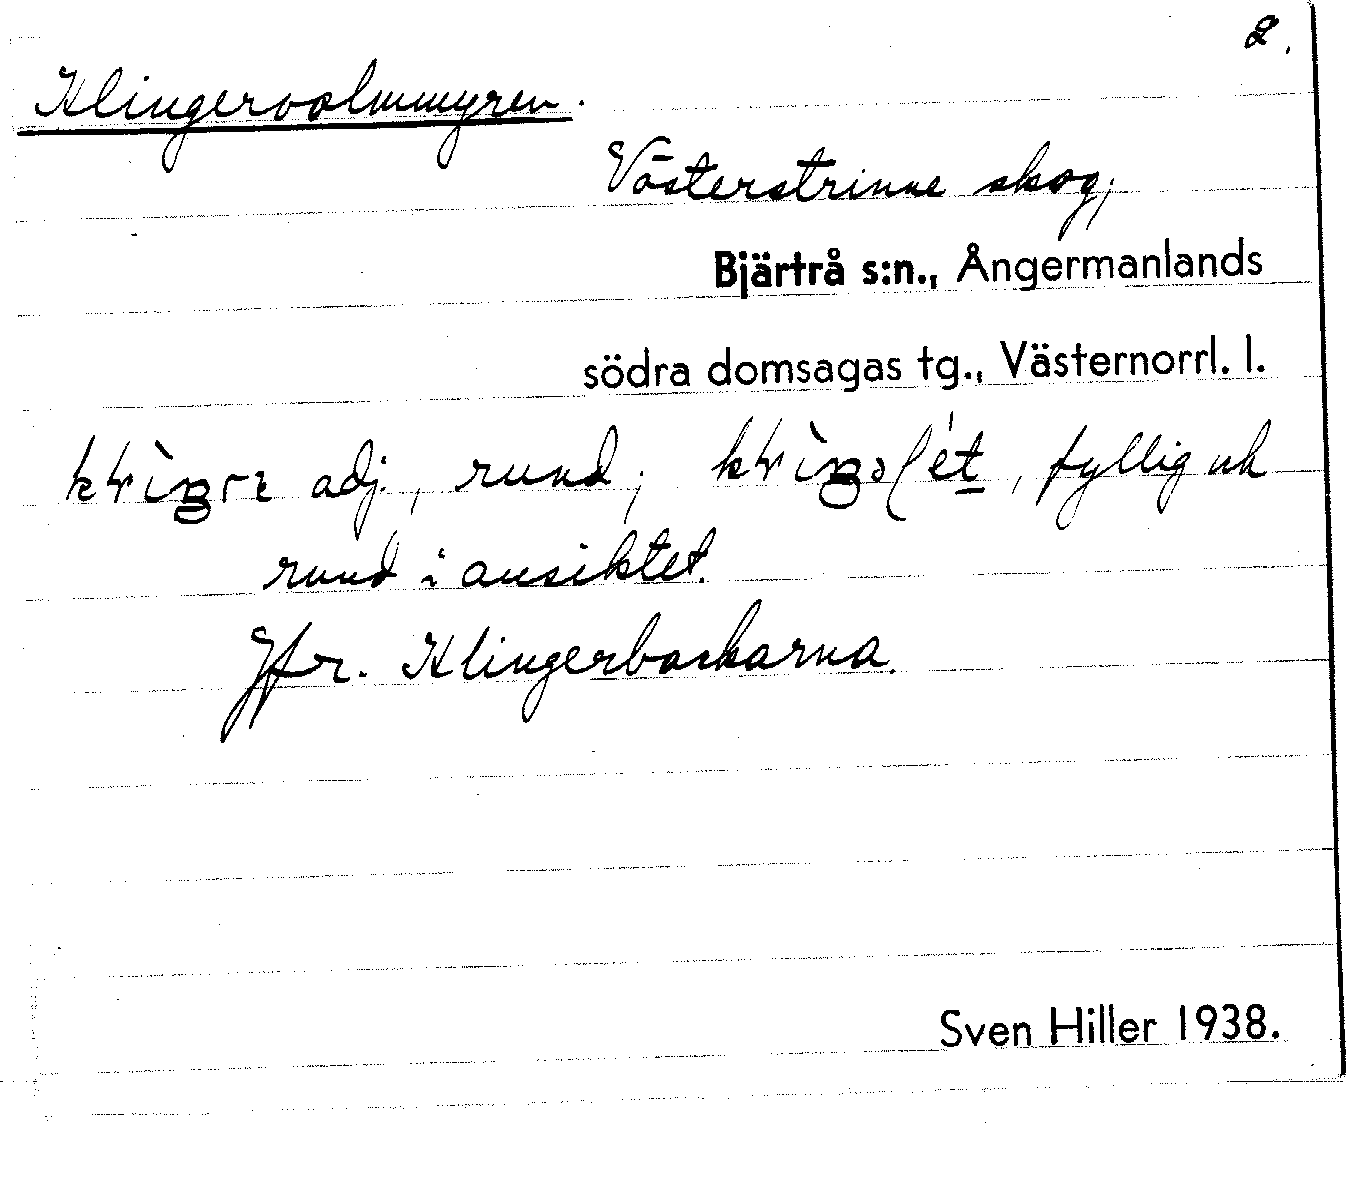 2.
Klingervalmmyren.
Västerstrinne skog,
Bjärtrå s:n., Ångermanlands
södra domsagas tg., Västernorrl. l.
adj., rund; fyllig och
rund i ansiktet.
Jfr. Klingerbackarna.
Sven Hiller 1938.